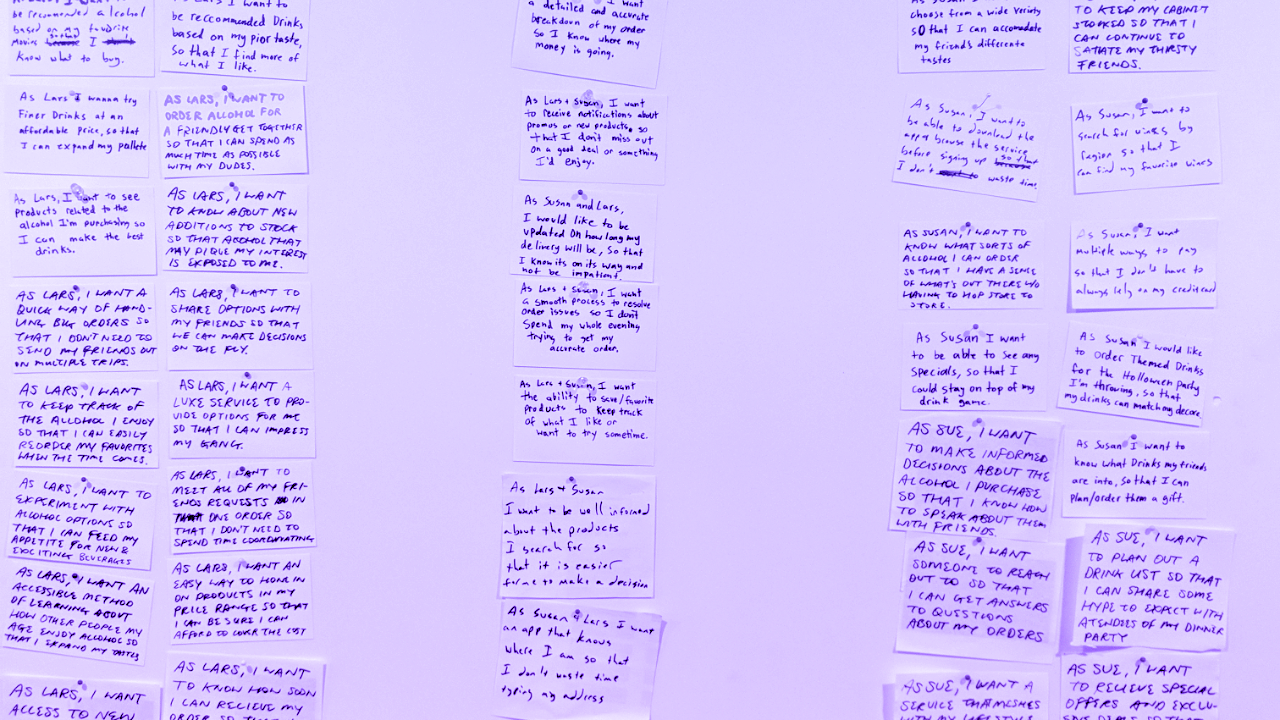 be recommended alcohol
based on my favorite
movies I
know what to buy.
As Lars I wanna try
Finer Drinks at an
affordable price, so that
I can expand my pallete
As Lars, I want to see
products related to the
alcohol I'm purchasing so
I can make the best
drinks.
AS LARS, I WANT A
QUICK WAY OF HAND-
LING BIG ORDERS SO
THAT I DON'T NEED TO
SEND MY FRIENDS OUT
ON MULTIPLE TRIPS.
AS LARS, I WANT
TO KEEP TRACK OF
THE ALCOHOL I ENJOY
SO THAT I CAN EASILY
REORDER MY FAVORITES
WHEN THE TIME COMES.
AS LARS, I WANT TO
EXPERIMENT WITH
ALCOHOL OPTIONS SO
THAT I CAN FEED MY
APPETITE FOR NEW &
EXCITING BEVERAGES
AS LARS, I WANT AN
ACCESSIBLE METHOD
OF LEARNING ABOUT
HOW OTHER PEOPLE MY
AGE ENJOY ALCOHOL SO
THAT I EXPAND MY TASTES
AS LARS, I WANT
ACCESS TO NEW
As Lars I want to
be reccommended Drinks
based on my pior taste,
so that I find more of
what I like.
AS LARS, I WANT TO
ORDER ALCOHOL FOR
A FRIENDLY GET TOGETHER
SO THAT I CAN SPEND AS
MUCH TIME AS POSSIBLE
WITH MY DUDES.
AS LARS, I WANT
TO KNOW ABOUT NEW
ADDITIONS TO STOCK
SO THAT ALCOHOL THAT
MAY PIQUE MY INTEREST
IS EXPOSED TO ME.
AS LARS, I WANT TO
SHARE OPTIONS WITH
MY FRIENDS SO THAT
WE CAN MAKE DECISIONS
ON THE FLY.
AS LARS, I WANT A
LUXE SERVICE TO PRO-
VIDE OPTIONS FOR ME
SO THAT I CAN IMPRESS
MY GANG.
AS LARS, I WANT TO
MEET ALL OF MY FRI-
ENDS REQUESTS IN
ONE ORDER SO
THAT I DON'T NEED TO
SPEND TIME COORDINATING
AS LARS, I WANT AN
EASY WAY TO HONE IN
ON PRODUCTS IN MY
PRICE RANGE SO THAT
I CAN BE SURE I CAN
AFFORD TO COVER THE COST
AS LARS, I WANT
TO KNOW HOW SOON
I CAN RECIEVE MY
ORDER SO THAT
I want
a detailed and accurate
breakdown of my order
so I know where my
money is going.
As Lars + Susan, I want
to receive notifications about
promos or new products, so
that I don't miss out
on a good deal or something
I'd enjoy.
As Susan and Lars,
I would like to be
updated on how long my
delivery will be, so that
I know its on its way and
not be impatient.
As Lars + Susan, I want
a smooth process to resolve
order issues so I don't
spend my whole evening
trying to get my
accurate order.
As Lars + Susan, I want
the ability to save/favorite
products to keep track
of what I like or
want to try sometime.
As Lars + Susan
I want to be well informed
about the products
I search for so
that it is easier
for me to make a decision
As Susan & Lars I want
an app that knows
where I am so that
I don't waste time
typing my address
As Susan I want to
choose from a wide variety
so that I can accomodate
my friends differente
tastes
As Susan, I want to
be able to download the
app & browse the service
before signing up so that
I don't waste time.
AS SUSAN, I WANT TO
KNOW WHAT SORTS OF
ALCOHOL I CAN ORDER
SO THAT I HAVE A SENSE
OF WHAT'S OUT THERE W/O
HAVING TO HOP STORE TO
STORE.
As Susan I want
to be able to see any
specials, so that I
could stay on top of my
drink game.
AS SUE, I WANT
TO MAKE INFORMED
DECISIONS ABOUT THE
ALCOHOL I PURCHASE
SO THAT I KNOW HOW
TO SPEAK ABOUT THEM
WITH FRIENDS.
AS SUE, I WANT
SOMEONE TO REACH
OUT TO SO THAT
I CAN GET ANSWERS
TO QUESTIONS
ABOUT MY ORDERS
AS SUE, I WANT A
SERVICE THAT MESHES
WITH MY LIFESTYLE
TO KEEP MY CABINT
STOCKED SO THAT I
CAN CONTINUE TO
SATIATE MY THIRSTY
FRIENDS.
As Susan, I want to
search for wines by
region so that I
can find my favorite wines
As Susan, I want
multiple ways to pay
so that I don't have to
always rely on my credit card
As Susan I would like
to order Themed Drinks
for the Halloween party
I'm throwing, so that
my drinks can match my decore.
As Susan I want to
know what Drinks my friends
are into, so that I can
plan/order them a gift.
AS SUE, I WANT
TO PLAN OUT A
DRINK LIST SO THAT
I CAN SHARE SOME
HYPE TO EXPECT WITH
ATENDEES OF MY DINNER
PARTY
AS SUE, I WANT
TO RECIEVE SPECIAL
OFFERS AND EXCLU-
SIVE DEALS SO THAT